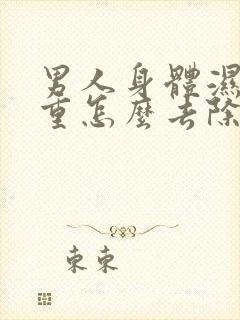 男人身體濕
重怎麼去除
東東